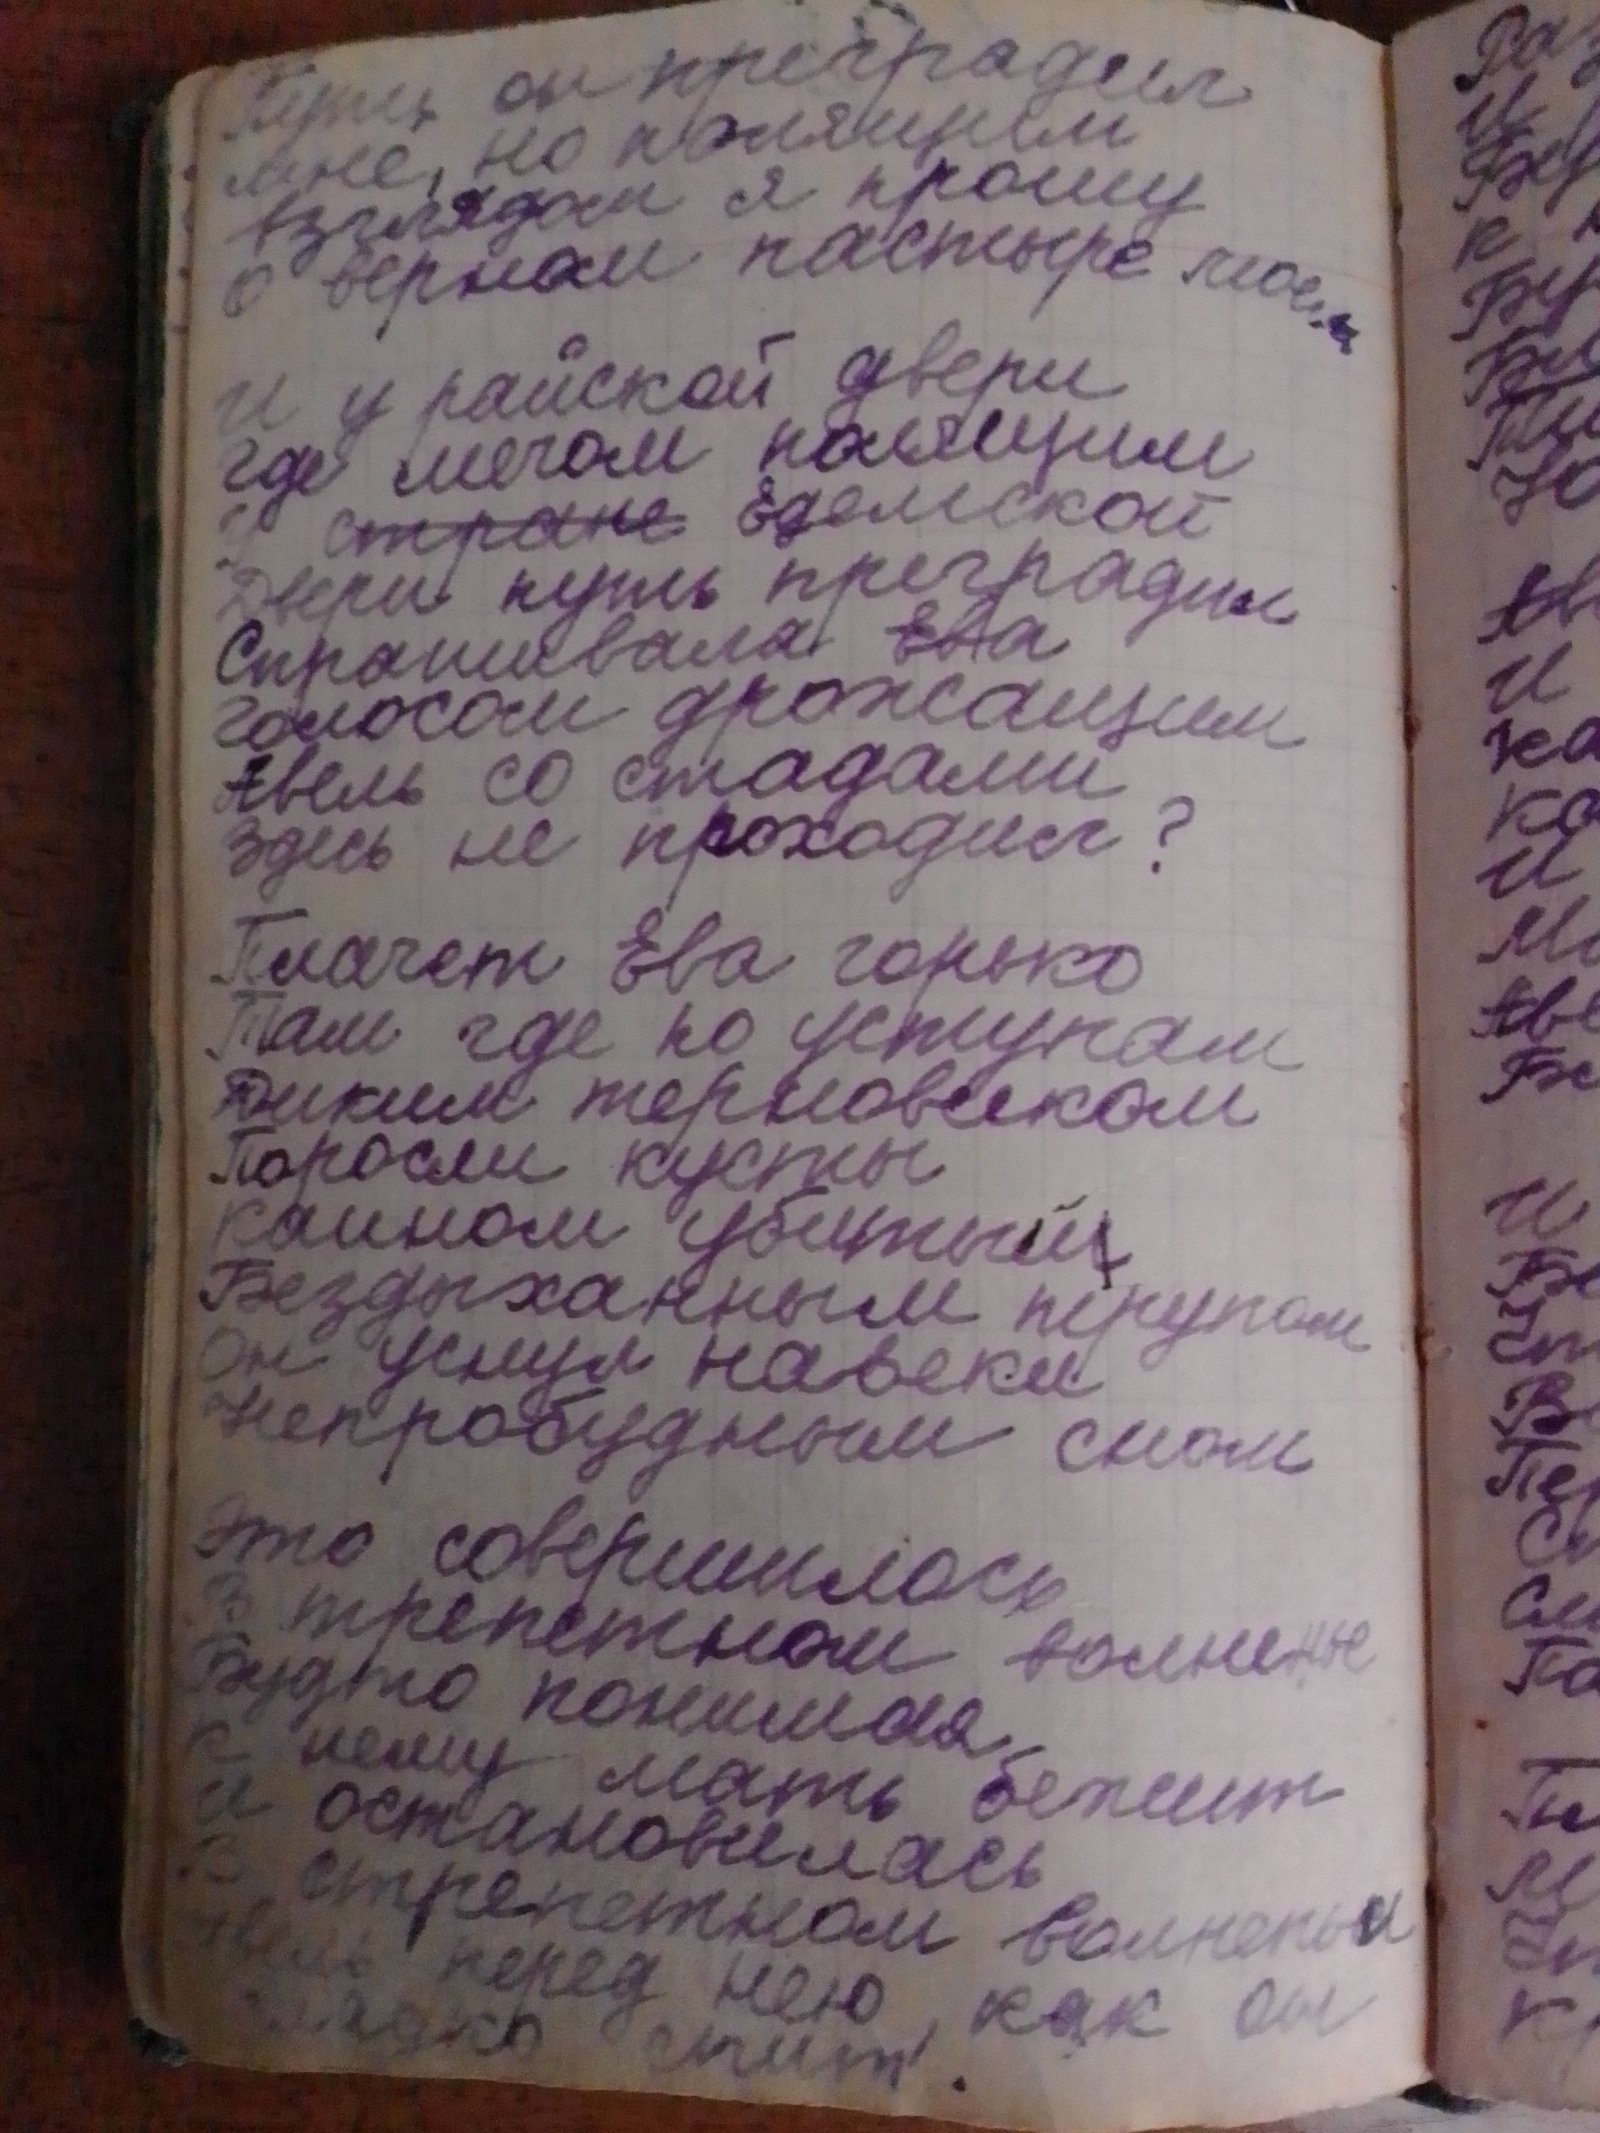 Путь он преградил
мне, но палящим
взглядом я прошу
о верном пастыре моем.
И у райской двери
где мечом палящим
стране Едемской
Двери путь преградил
Спрашивала Ева
голосом дрожащим
Авель со стадами
здесь не проходил?
Плачет Ева горько
Там где по уступам
Диким терновником
Поросли кусты
Каином убитый
Бездыханным трупом
Он уснул навеки
Непробудным сном
Это совершилось
В трепетном волненье
Будто понимая
К нему мать бежит
И остановилась
В стрепетном волненьи
Авель перед нею, как он
сладко спит.
Раз
И
К
Аве
И
Ка
Ка
И
Аве
И
Пер
По
И